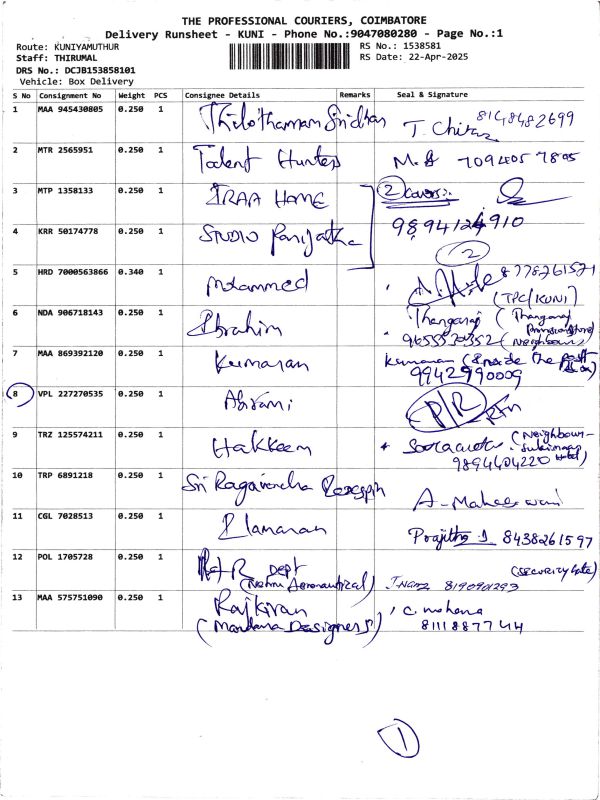 THE PROFESSIONAL COURIERS, COIMBATORE
Delivery Runsheet - KUNI - Phone No.:9047080280 - Page No.:1
Route: KUNIYAMUTHUR
RS No.: 1538581
Staff: THIRUMAL
RS Date: 22-Apr-2025
DRS No.: DCJB153858101
Vehicle: Box Delivery
S No Consignment No Weight PCS Consignee Details Remarks Seal & Signature
1 MAA 945430805 0.250 1 Thilothaman Sridhar T. Chitra 8148482699
2 MTR 2565951 0.250 1 Talent Hunters 7094057805
3 MTP 1358133 0.250 1 IRAA HOME 2 Covers:-
4 KRR 50174778 0.250 1 STUDIO Parijatha 9894124910
2
5 HRD 7000563866 0.340 1 Mohammed 8778261521
(TPC/KUNI)
6 NDA 906718143 0.250 1 Ibrahim Thangaraj (Thangaraj
9655530352 (Neighbour)
7 MAA 869392120 0.250 1 Kumaran Kumaran (Inside the
9942990009
8 VPL 227270535 0.250 1 Abirami P/R RTN
9 TRZ 125574211 0.250 1 Hakkeem (Neighbour-
9894404220
10 TRP 6891218 0.250 1 Sri Ragavendra A. Maheswari
11 CGL 7028513 0.250 1 Elamaran Prajitha 8438261597
12 POL 1705728 0.250 1 DEPT (Security Gate)
(Nehru Aeronautical) 8190901293
13 MAA 575751090 0.250 1 Rajkiran C. Mohana
(Mandana Designers) 8111887744
1